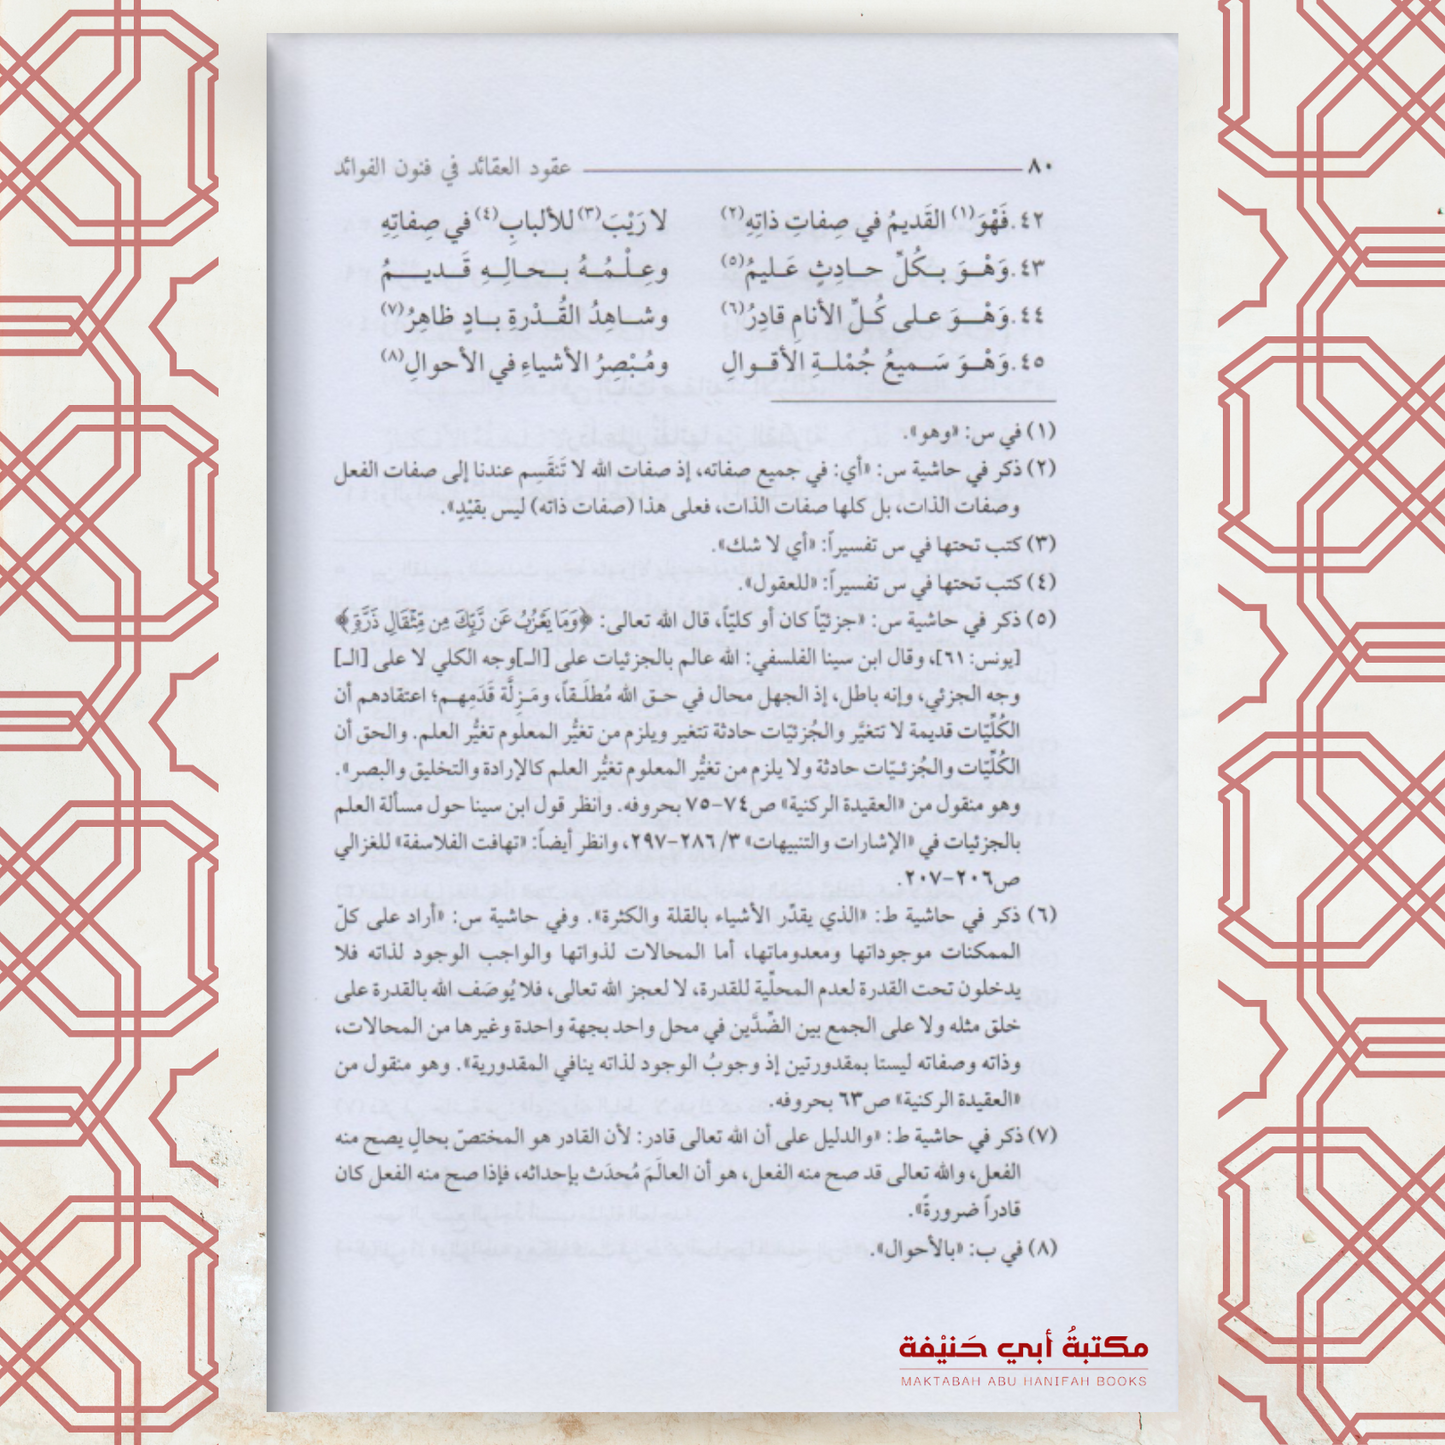 ٨٠ عقود العقائد في فنون الفوائد
٤٢. فَهْوَ(١) القَديمُ في صِفاتِ ذاتِهِ(٢) لا رَيْبَ(٣) للألبابِ(٤) في صِفاتِهِ
٤٣. وَهْـوَ بـكُلِّ حـادِثٍ عَـليمُ(٥) وعِـلْـمُـهُ بـحالِـهِ قَـديـــمُ
٤٤. وَهْـــوَ عـلى كُـلِّ الأنامِ قادِرُ(٦) وشـاهِدُ القُـدْرةِ بـادٍ ظاهِرُ(٧)
٤٥. وَهْــوَ سَـميعُ جُمْلـةِ الأقـوالِ ومُـبْصِرُ الأشياءِ في الأحوالِ(٨)
(١) في س: «وهو».
(٢) ذكر في حاشية س: «أي: في جميع صفاته، إذ صفات الله لا تَنقَسِم عندنا إلى صفات الفعل
وصفات الذات، بل كلها صفات الذات، فعلى هذا (صفات ذاته) ليس بقيْدٍ».
(٣) كتب تحتها في س تفسيراً: «أي لا شك».
(٤) كتب تحتها في س تفسيراً: «للعقول».
(٥) ذكر في حاشية س: «جزئيّاً كان أو كليّاً، قال الله تعالى: ﴿وَمَا يَعْزُبُ عَن رَّبِّكَ مِن مِّثْقَالِ ذَرَّةٍ﴾
[يونس: ٦١]، وقال ابن سينا الفلسفي: الله عالم بالجزئيات على [الـ]وجه الكلي لا على [الـ]
وجه الجزئي، وإنه باطل، إذ الجهل محال في حـق الله مُطلَـقاً، ومَـزِلَّة قَدَمِهـم؛ اعتقادهم أن
الكُلِّيّات قديمة لا تتغيَّر والجُزئيّات حادثة تتغير ويلزم من تغيُّر المعلوم تغيُّر العلم. والحق أن
الكُلِّيّات والجُزئيّات حادثة ولا يلزم من تغيُّر المعلوم تغيُّر العلم كالإرادة والتخليق والبصر».
وهو منقول من «العقيدة الركنية» ص٧٤-٧٥ بحروفه. وانظر قول ابن سينا حول مسألة العلم
بالجزئيات في «الإشارات والتنبيهات» ٣/ ٢٨٦-٢٩٧، وانظر أيضاً: «تهافت الفلاسفة» للغزالي
ص٢٠٦-٢٠٧.
(٦) ذكر في حاشية ط: «الذي يقدّر الأشياء بالقلة والكثرة». وفي حاشية س: «أراد على كلّ
الممكنات موجوداتها ومعدوماتها، أما المحالات لذواتها والواجب الوجود لذاته فلا
يدخلون تحت القدرة لعدم المحلّية للقدرة، لا لعجز الله تعالى، فلا يُوصَف الله بالقدرة على
خلق مثله ولا على الجمع بين الضِّدَّين في محل واحد بجهة واحدة وغيرها من المحالات،
وذاته وصفاته ليستا بمقدورتين إذ وجوبُ الوجود لذاته ينافي المقدورية». وهو منقول من
«العقيدة الركنية» ص٦٣ بحروفه.
(٧) ذكر في حاشية ط: «والدليل على أن الله تعالى قادر: لأن القادر هو المختصّ بحالٍ يصح منه
الفعل، والله تعالى قد صح منه الفعل، هو أن العالَمَ مُحدَث بإحداثه، فإذا صح منه الفعل كان
قادراً ضرورةً».
(٨) في ب: «بالأحوال».
مكتبةُ أبي حَنيْفة
MAKTABAH ABU HANIFAH BOOKS